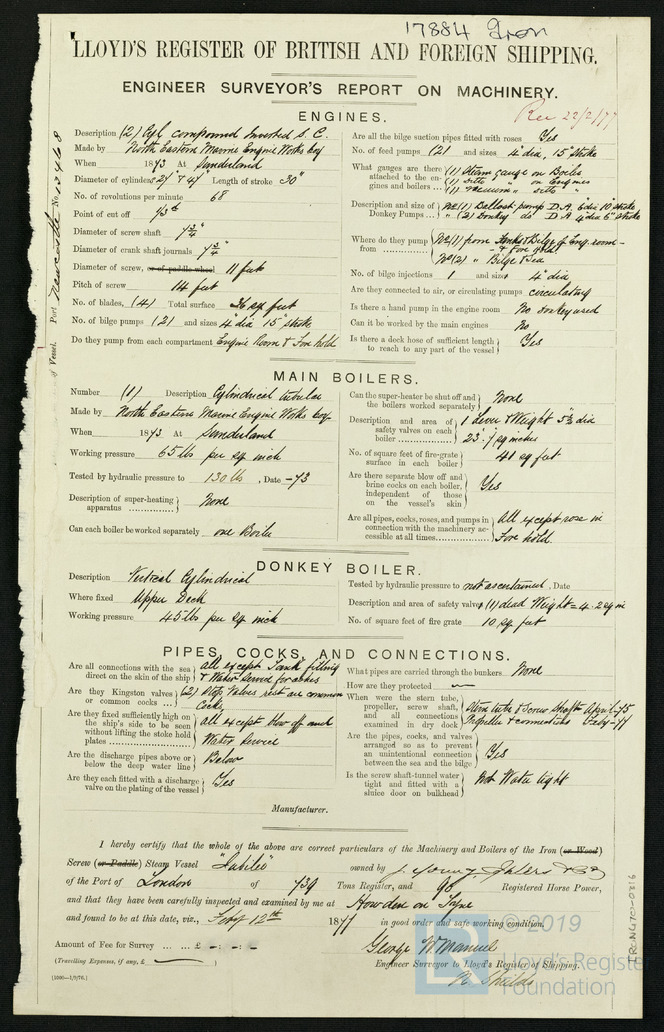 17884 Iron
LLOYD'S REGISTER OF BRITISH AND FOREIGN SHIPPING.
ENGINEER SURVEYOR'S REPORT ON MACHINERY.
Rec 22/2/77
ENGINES.
Description (2) Cyl compound Inverted S. C.
Made by North Eastern Marine Engine Works Coy
When 1873 At Sunderland
Diameter of cylinders 27" & 47" Length of stroke 30"
No. of revolutions per minute 68
Point of cut off
Diameter of screw shaft 7 3/4"
Diameter of crank shaft journals 7 3/4"
Diameter of screw, or of paddle wheel 11 feet
Pitch of screw 14 feet
No. of blades, (4) Total surface 36 sq feet
No. of bilge pumps (2) and sizes 4" dia 15" stroke
Do they pump from each compartment Engine Room & Fore hold
Are all the bilge suction pipes fitted with roses Yes
No. of feed pumps (2) and sizes 4" dia, 15" stroke
What gauges are there attached to the engines and boilers (1) Steam gauge on Boiler
(1) ditto " on Engines
(1) Vacuum " ditto "
Description and size of Donkey Pumps No (1) Ballast pump D. A. 6 dia 10" stroke
" (2) Donkey do D. A 4 dia 6" stroke
Where do they pump from No (1) from Tanks & Bilge of Eng. room
& Fore hold
No (2) " Bilge & Sea
No. of bilge injections 1 and sizes 4" dia
Are they connected to air, or circulating pumps circulating
Is there a hand pump in the engine room No donkey used
Can it be worked by the main engines No
Is there a deck hose of sufficient length to reach to any part of the vessel Yes
MAIN BOILERS.
Number (1) Description Cylindrical tubular
Made by North Eastern Marine Engine Works Coy
When 1873 At Sunderland
Working pressure 65 lbs per sq inch
Tested by hydraulic pressure to 130 lbs, Date -73
Description of super-heating apparatus None
Can each boiler be worked separately one Boiler
Can the super-heater be shut off and the boilers worked separately None
Description and area of safety valves on each boiler 1 Lever & Weight 5½ dia
23.7 sq inches
No. of square feet of fire-grate surface in each boiler 41 sq feet
Are there separate blow off and brine cocks on each boiler, independent of those on the vessel's skin Yes
Are all pipes, cocks, roses, and pumps in connection with the machinery accessible at all times All except rose in
Fore hold
DONKEY BOILER.
Description Vertical Cylindrical
Where fixed Upper Deck
Working pressure 45 lbs per sq inch
Tested by hydraulic pressure to not ascertained, Date
Description and area of safety valve (1) dead Weight = 4.2 sq in
No. of square feet of fire grate 10 sq. feet
PIPES, COCKS, AND CONNECTIONS.
Are all connections with the sea direct on the skin of the ship all except Tank filling
& Water Service for ashes
Are they Kingston valves or common cocks (2) Stop Valves rest are common
Cocks
Are they fixed sufficiently high on the ship's side to be seen without lifting the stoke hold plates all except blow off and
Water Service
Are the discharge pipes above or below the deep water line Below
Are they each fitted with a discharge valve on the plating of the vessel Yes
What pipes are carried through the bunkers None
How are they protected
When were the stern tube, propeller, screw shaft, and all connections examined in dry dock Stern tube & Screw Shaft April -75
Propeller & connections Feby -77
Are the pipes, cocks, and valves arranged so as to prevent an unintentional connection between the sea and the bilge Yes
Is the screw shaft-tunnel water tight and fitted with a sluice door on bulkhead Not Water tight
Manufacturer.
I hereby certify that the whole of the above are correct particulars of the Machinery and Boilers of the Iron (or Wood)
Screw (or Paddle) Steam Vessel "Jubilee" owned by J. Young, Ehlers & Co
of the Port of London of 739 Tons Register, and 98 Registered Horse Power,
and that they have been carefully inspected and examined by me at Howden on Tyne
and found to be at this date, viz., Feby 12th 1877 in good order and safe working condition.
Amount of Fee for Survey £ - : - : -
(Travelling Expenses, if any, £ )
George W. Manuel
Engineer Surveyor to Lloyd's Register of Shipping.
N. Shields
of Vessel. Port Newcastle No.
IRON470-0316
© 2019
Lloyd's Register
Foundation